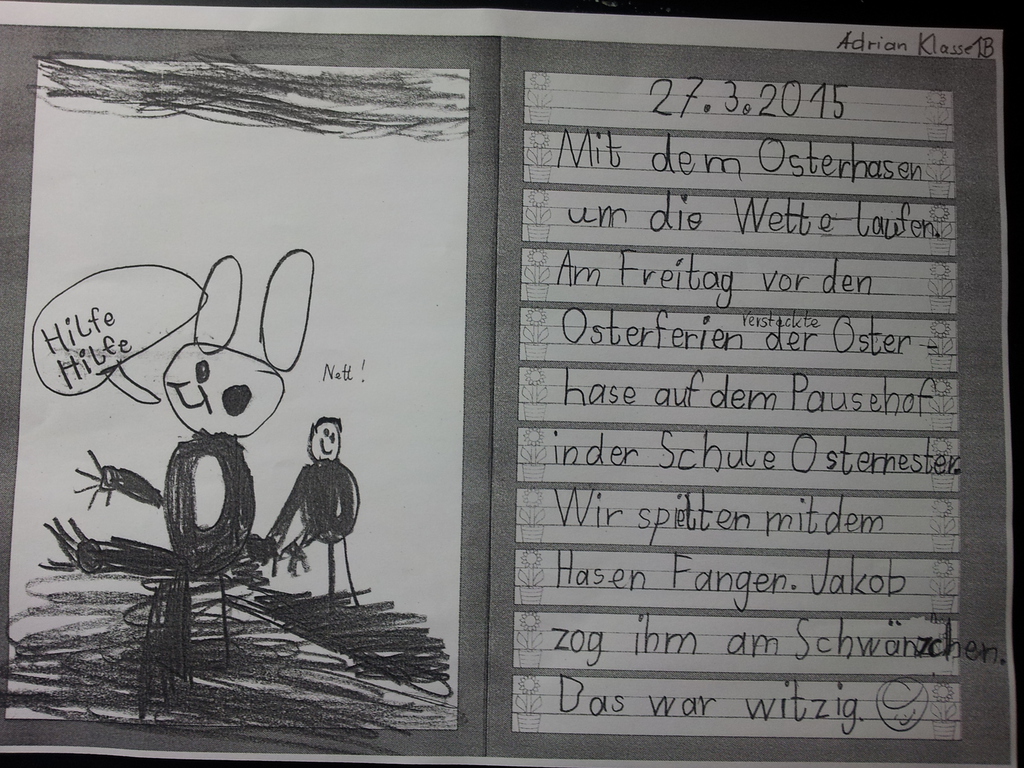 Adrian Klasse 1B
27.3.2015
Mit dem Osterhasen
um die Wette laufen.
Am Freitag vor den
Osterferien versteckte der Oster-
hase auf dem Pausehof
in der Schule Osternester.
Wir spielten mit dem
Hasen Fangen. Jakob
zog ihm am Schwänzchen.
Das war witzig.
Hilfe
Hilfe
Nett!